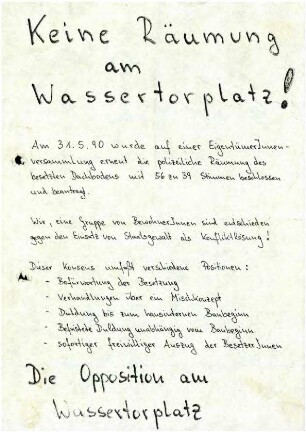 Keine Räumung
am
Wassertorplatz!
Am 31.5.90 wurde auf einer EigentümerInnen-
versammlung erneut die polizeiliche Räumung des
besetzten Dachbodens mit 56 zu 39 Stimmen beschlossen
und beantragt.
Wir, eine Gruppe von BewohnerInnen sind entschieden
gegen den Einsatz von Staatsgewalt als Konfliktlösung!
Dieser Konsens umfaßt verschiedene Positionen:
- Befürwortung der Besetzung
- Verhandlungen über ein Mischkonzept
- Duldung bis zum hausinternen Baubeginn
- Befristete Duldung unabhängig vom Baubeginn
- sofortiger freiwilliger Auszug der BesetzerInnen
Die Opposition am
Wassertorplatz